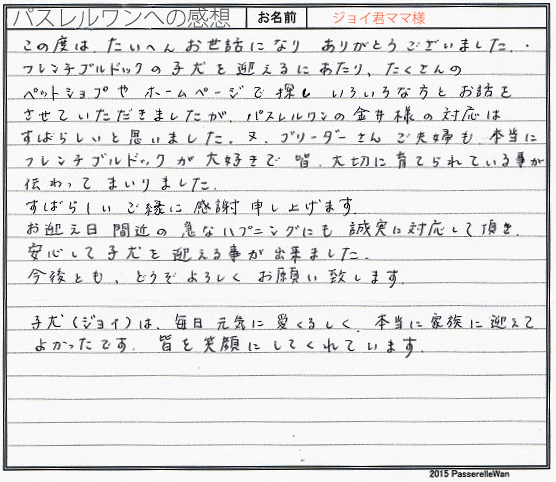 パスレルワンへの感想 お名前 ジョイ君ママ様
この度は、たいへんお世話になり ありがとうございました。
フレンチブルドックの子犬を迎えるにあたり、たくさんの
ペットショップや ホームページで探し いろいろな方とお話を
させていただきましたが、パスレルワンの金井様の対応は
すばらしいと思いました。又、ブリーダーさん ご夫婦も、本当に
フレンチブルドックが大好きで皆、大切に育てられている事が
伝わってまいりました。
すばらしいご縁に感謝申し上げます。
お迎え日間近の急なハプニングにも誠実に対応して頂き、
安心して子犬を迎える事が出来ました。
今後とも、どうぞよろしくお願い致します。
子犬(ジョイ)は、毎日元気に愛くるしく、本当に家族に迎えて
よかったです。皆を笑顔にしてくれています。
2015 PasserelleWan